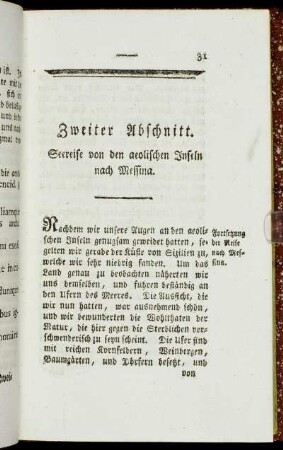 31
Zweiter Abschnitt.
Seereise von den aeolischen Inseln
nach Messina.
Nachdem wir unsere Augen an den aeoli-
schen Inseln genugsam geweidet hatten, se-
gelten wir gerade der Küste von Sizilien zu,
welche wir sehr niedrig fanden. Um das
Land genau zu beobachten näherten wir
uns demselben, und fuhren beständig an
den Ufern des Meeres. Die Aussicht, die
wir nun hatten, war ausnehmend schön,
und wir bewunderten die Wohlthaten der
Natur, die hier gegen die Sterblichen ver-
schwenderisch zu seyn scheint. Die Ufer sind
mit reichen Kornfeldern, Weinbergen,
Baumgärten, und Dörfern besetzt, und
von
Fortsetzung
der Reise
nach Mes-
sina.